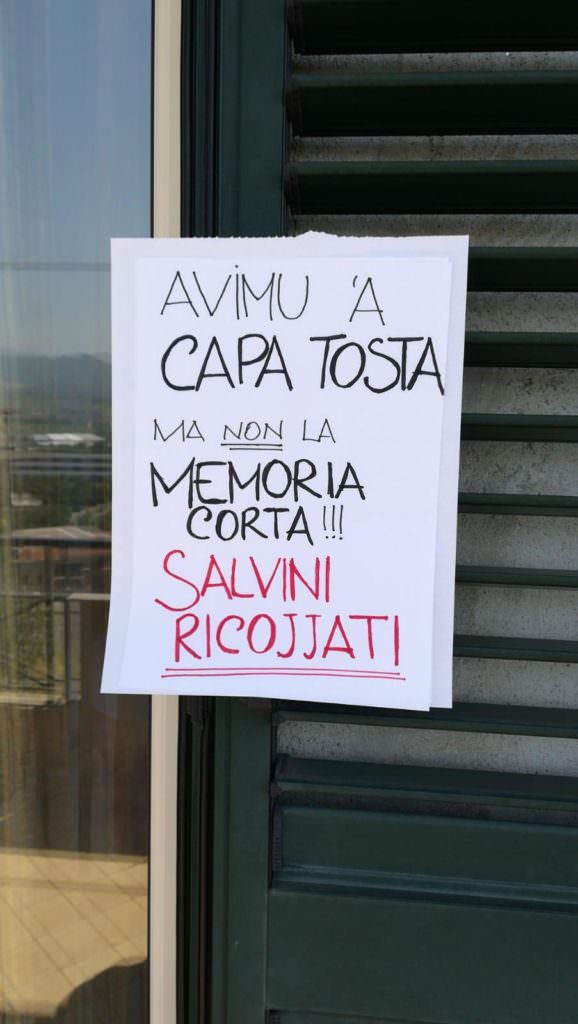 AVIMU 'A
CAPA TOSTA
MA NON LA
MEMORIA
CORTA!!!
SALVINI
RICOJJATI